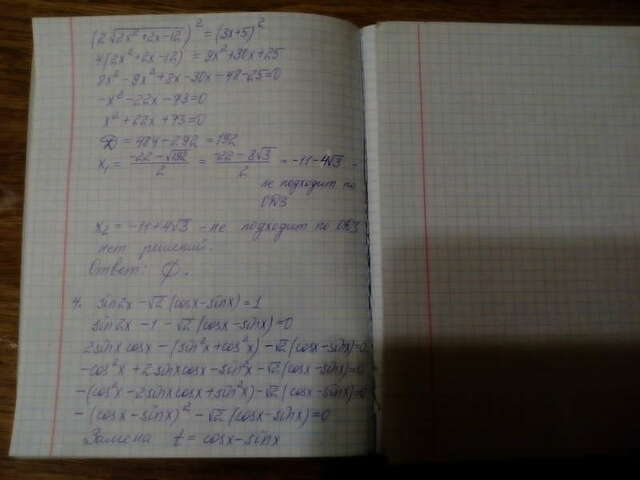 (2√(2x²+2x-12))² = (3x+5)²
4(2x²+2x-12) = 9x²+30x+25
8x²-9x²+8x-30x-48-25=0
-x²-22x-73=0
x²+22x+73=0
D=484-292=192
x₁ = (-22-√192)/2 = (-22-8√3)/2 = -11-4√3 -
не подходит по
ОДЗ
x₂ = -11+4√3 - не подходит по ОДЗ
нет решений.
Ответ: ∅.
4. sin2x-√2(cosx-sinx)=1
sin2x-1-√2(cosx-sinx)=0
2sinxcosx-(sin²x+cos²x)-√2(cosx-sinx)=0
-cos²x+2sinxcosx-sin²x-√2(cosx-sinx)=0
-(cos²x-2sinxcosx+sin²x)-√2(cosx-sinx)=0
-(cosx-sinx)²-√2(cosx-sinx)=0
Замена t=cosx-sinx